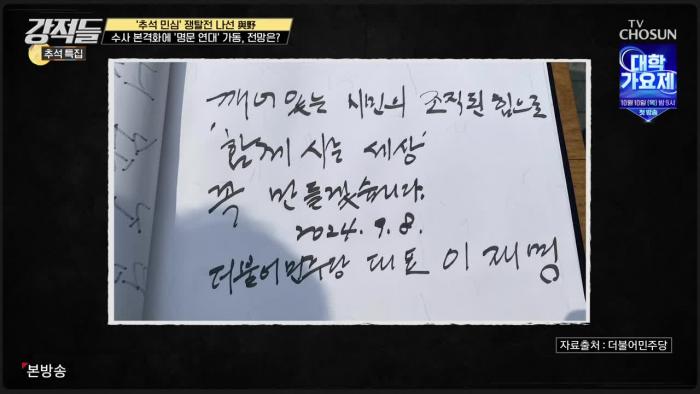 강적들
추석 특집
'추석 민심' 쟁탈전 나선 與野
수사 본격화에 '명문 연대' 가동, 전망은?
TV CHOSUN
대학
가요제
10월 10일 (목) 밤 9시
첫 방송
깨어 있는 시민의 조직된 힘으로
'함께 사는 세상'
꼭 만들겠습니다.
2024. 9. 8.
더불어민주당 대표 이재명
자료출처 : 더불어민주당
본방송